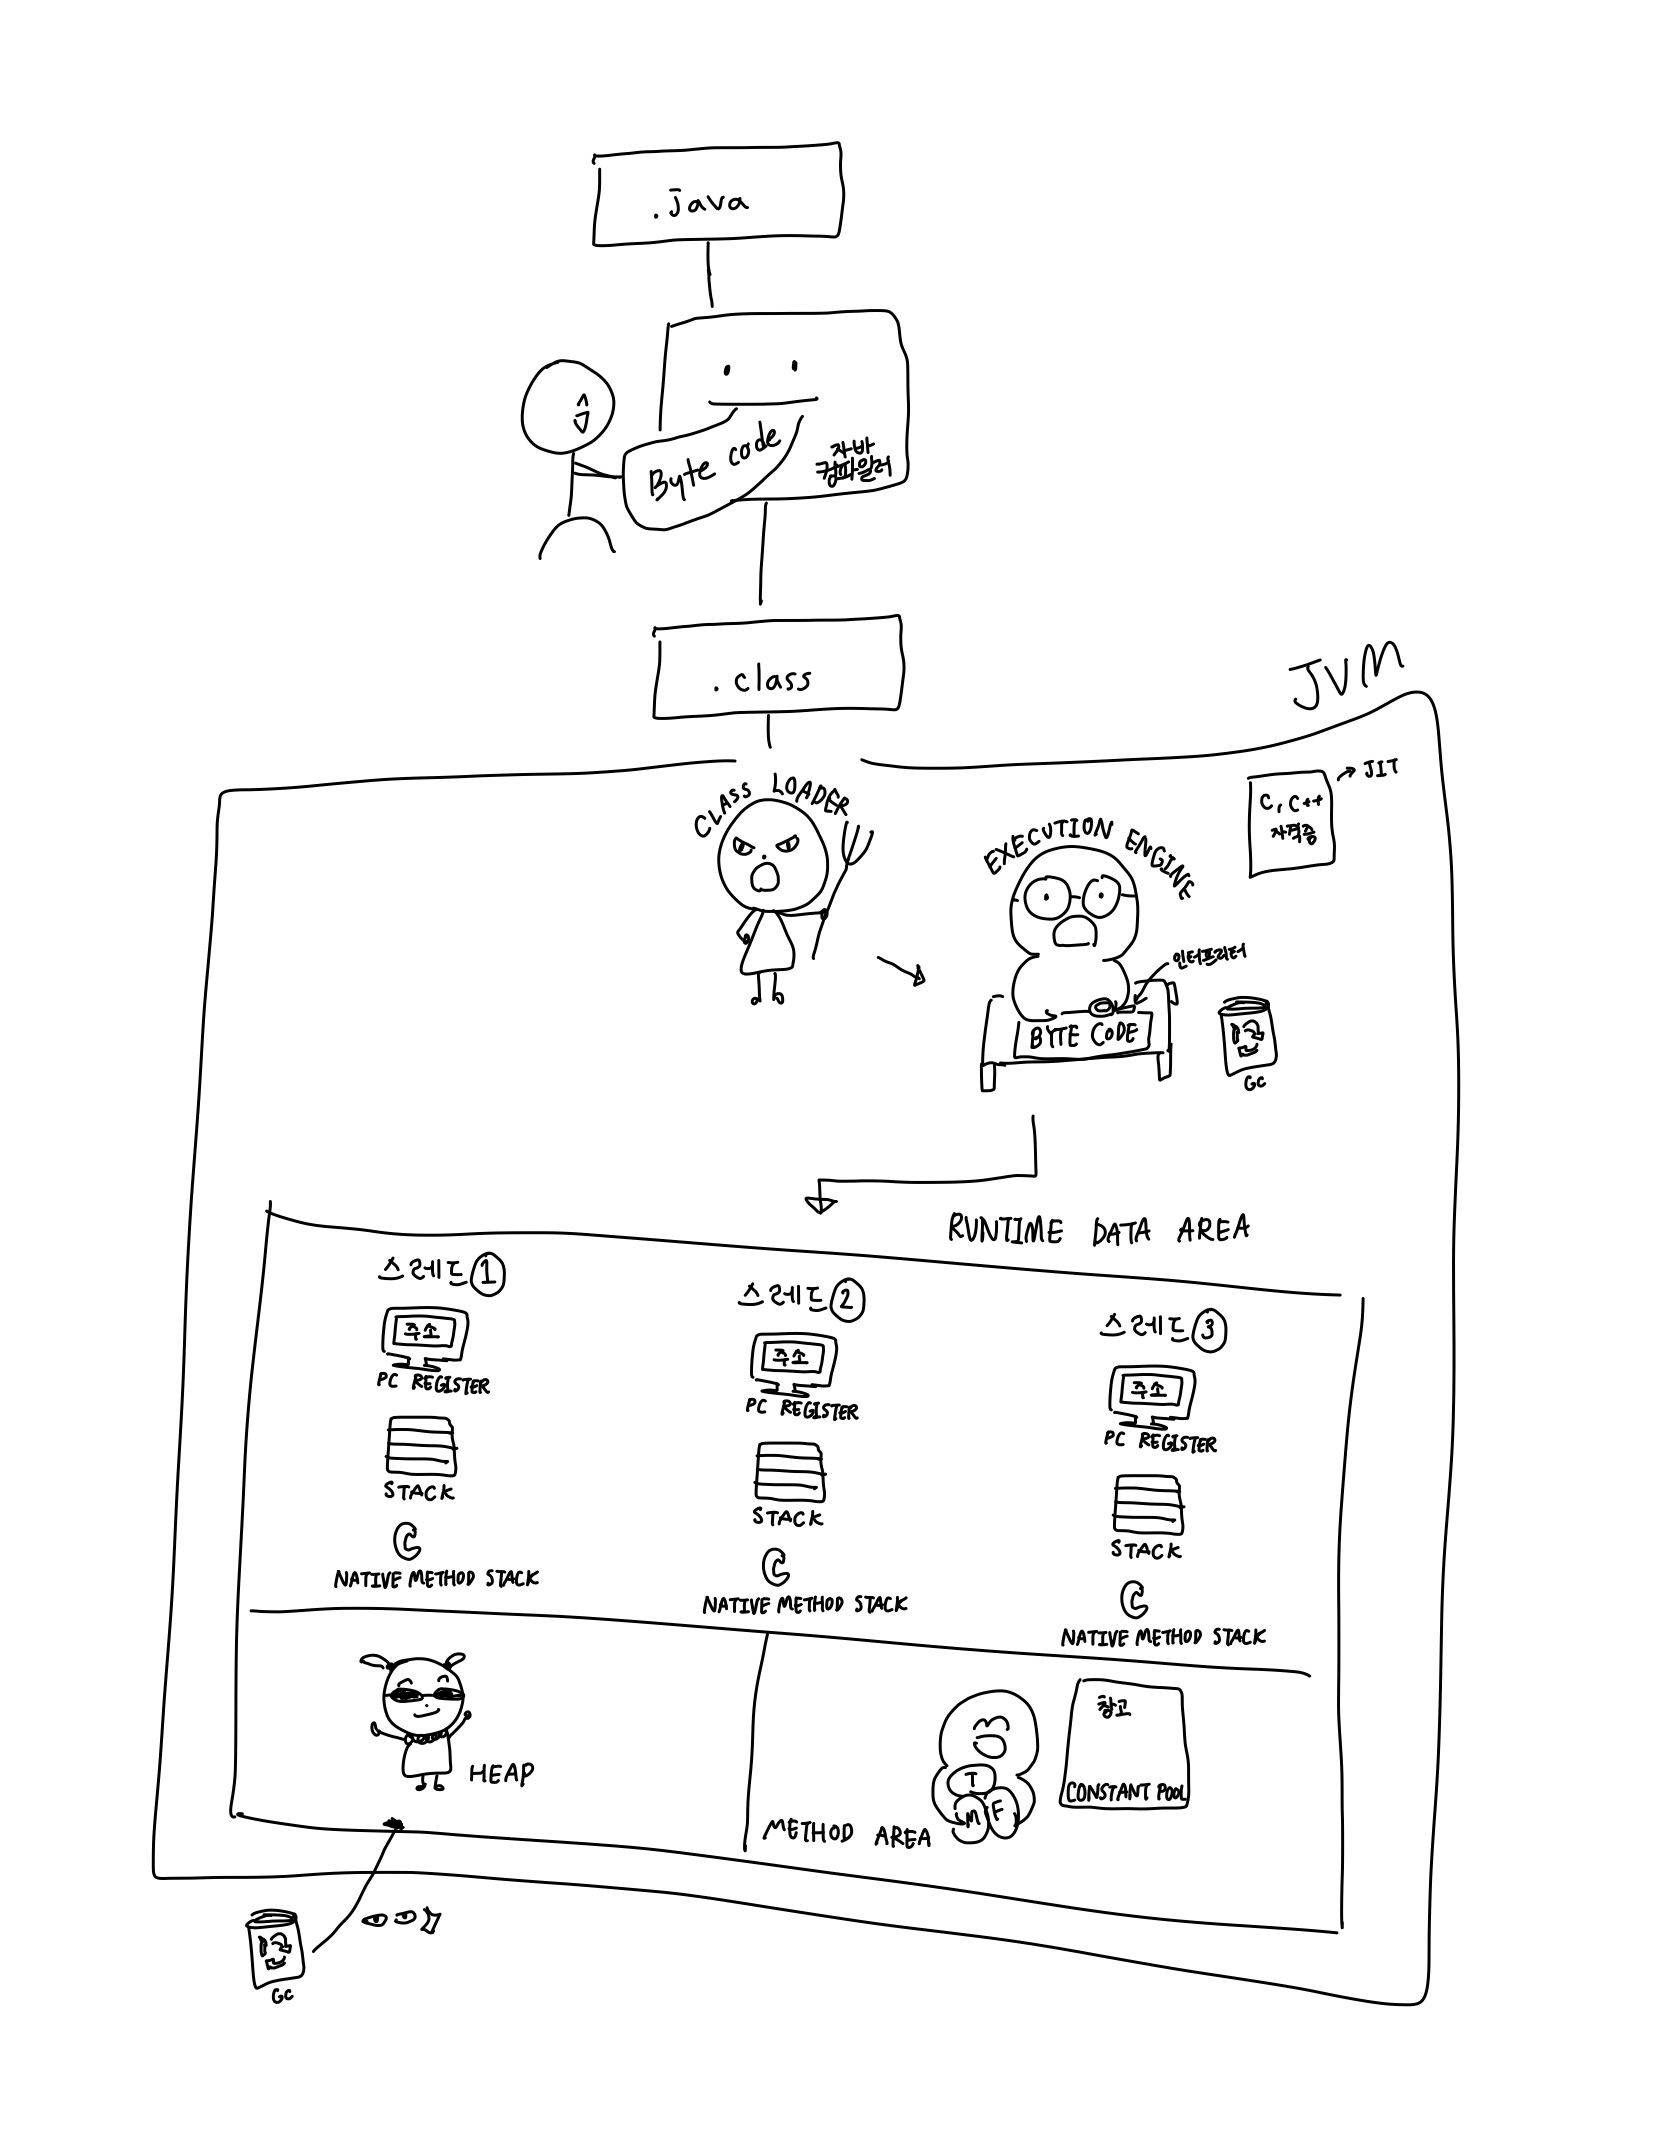 .java
Byte code
자바
컴파일러
.class
JVM
CLASS LOADER
EXECUTION ENGINE
C, C++
자격증
JIT
인터프리터
BYTE CODE
GC
RUNTIME DATA AREA
스레드 1
주소
PC REGISTER
STACK
C
NATIVE METHOD STACK
스레드 2
주소
PC REGISTER
STACK
C
NATIVE METHOD STACK
스레드 3
주소
PC REGISTER
STACK
C
NATIVE METHOD STACK
HEAP
METHOD AREA
T
M
F
창고
CONSTANT POOL
GC